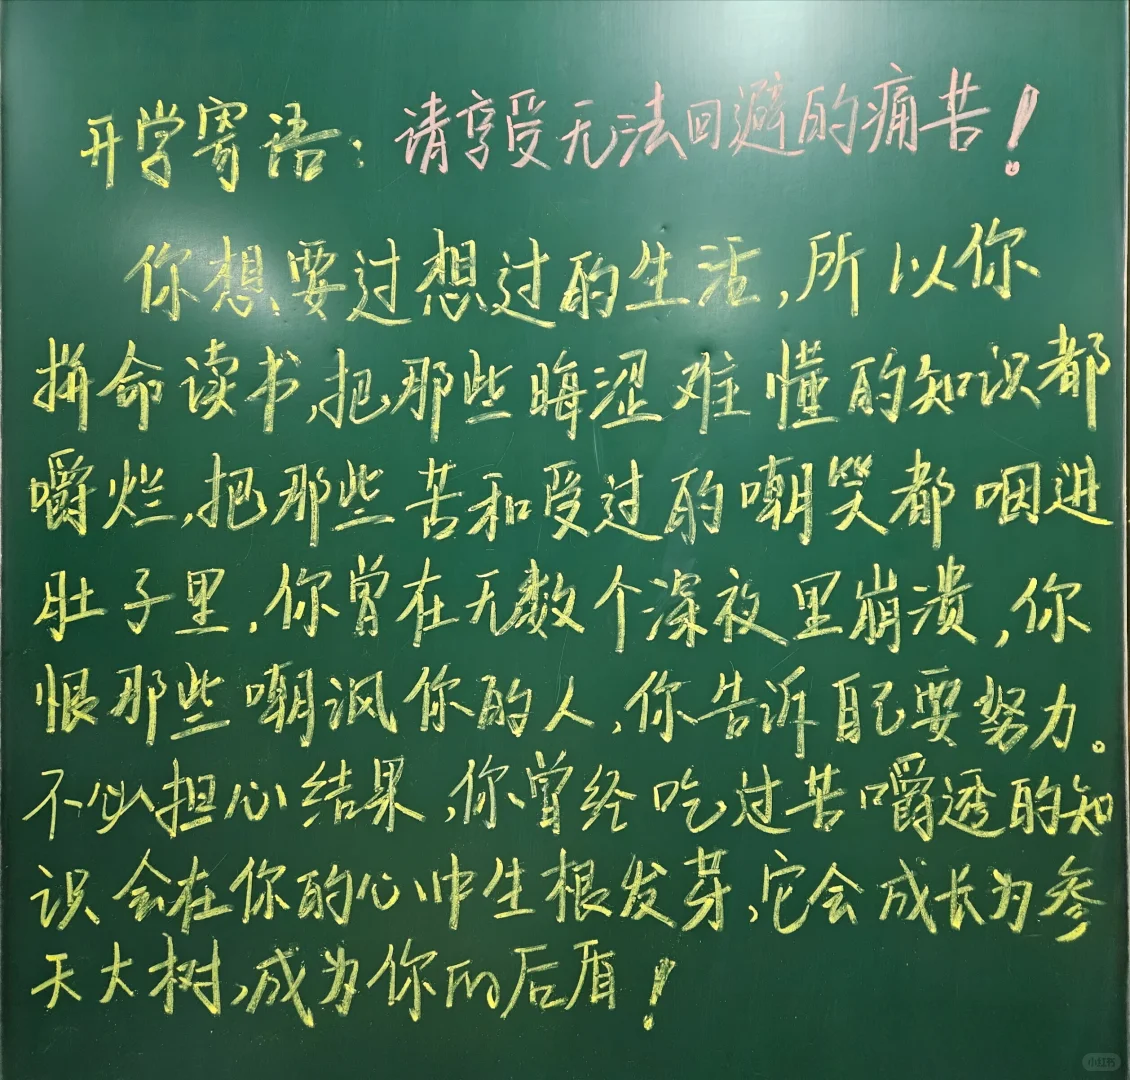 开学寄语：请享受无法回避的痛苦！
你想要过想过的生活，所以你
拼命读书，把那些晦涩难懂的知识都
嚼烂，把那些苦和受过的嘲笑都咽进
肚子里，你曾在无数个深夜里崩溃，你
恨那些嘲讽你的人，你告诉自己要努力。
不必担心结果，你曾经吃过苦嚼透的知
识会在你的心中生根发芽，它会成长为参
天大树，成为你的后盾！
小红书